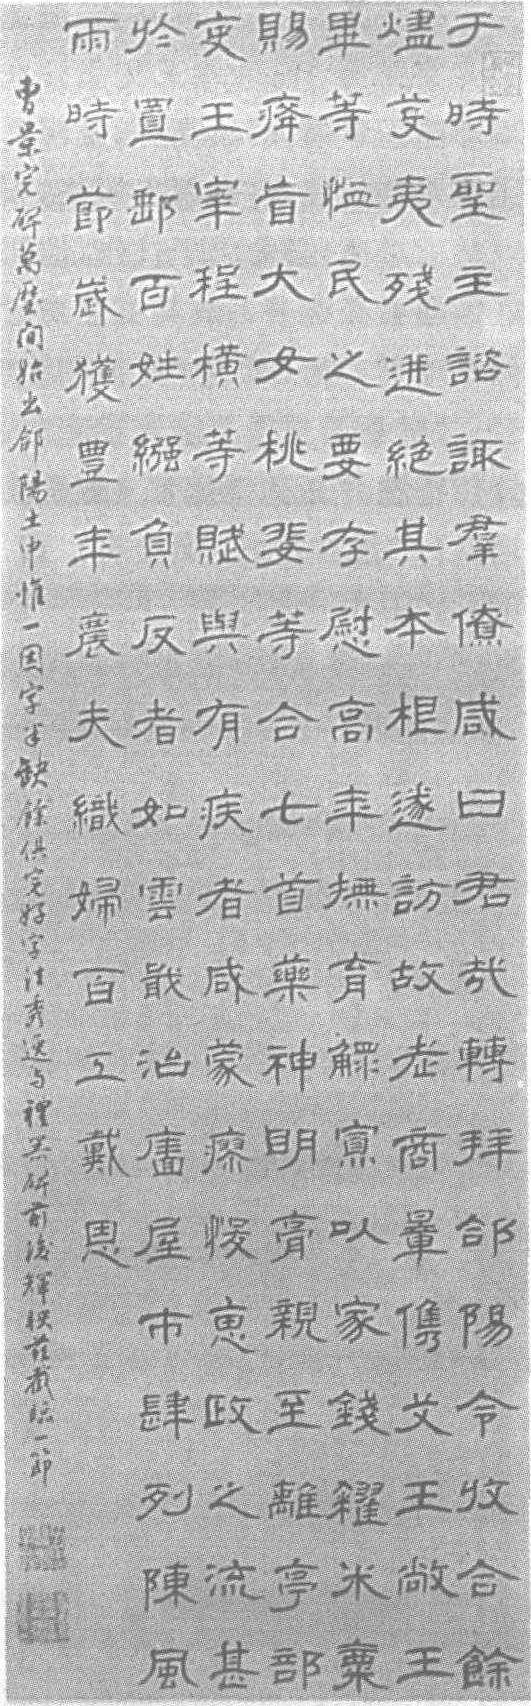 于時聖主諮諏羣僚咸曰君哉轉拜郃陽令收合餘
燼芟夷殘迸絕其本根遂訪故老商量儁艾王敞王
畢等恤民之要存慰高年撫育鰥寡以家錢糴米粟
賜癃盲大女桃婓等合七首藥神明膏親至離亭部
吏王宰程橫等賦與有疾者咸蒙瘳悛惠政之流甚
於置郵百姓繦負反者如雲戢治廧屋市肆列陳風
雨時節歲獲豐年農夫織婦百工戴恩
曹景完碑萬曆間始出郃陽土中惟一因字半缺餘俱完好字法秀逸与禮器碑前後輝映茲截臨一節